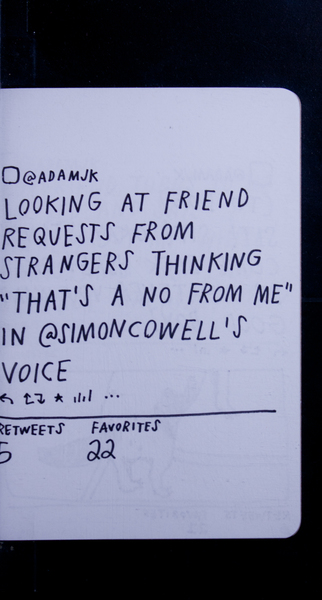 @ADAMJK
LOOKING AT FRIEND
REQUESTS FROM
STRANGERS THINKING
"THAT'S A NO FROM ME"
IN @SIMONCOWELL'S
VOICE
RETWEETS FAVORITES
5 22